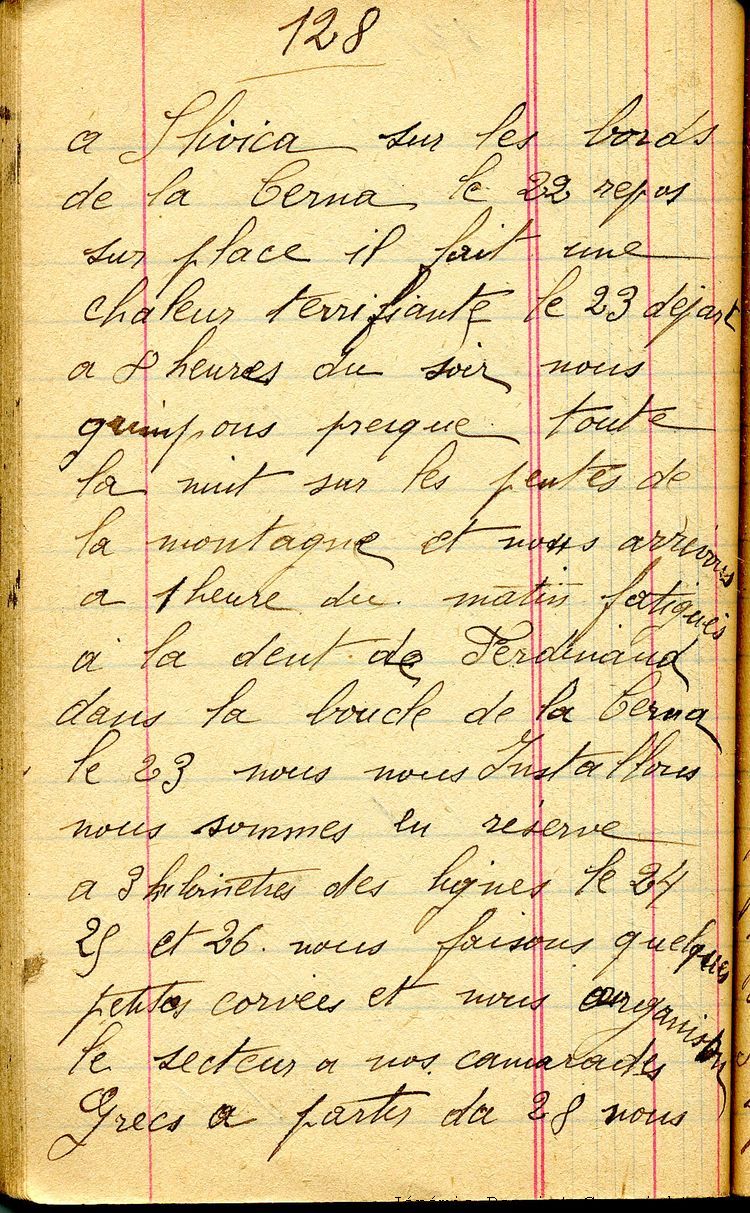 128
a Slivica sur les bords
de la Cerna le 22 repos
sur place il fait une
chaleur terrifiante le 23 départ
a 8 heures du soir nous
grimpons presque toute
la nuit sur les pentes de
la montagne et nous arrivons
a 1 heure du matin fatigués
a la dent de Ferdinand
dans la boucle de la Cerna
le 23 nous nous Installons
nous sommes en réserve
a 3 kilomètres des lignes le 24
25 et 26 nous faisons quelques
petites corvées et nous organisons
le secteur a nos camarades
Grecs a partir da 28 nous